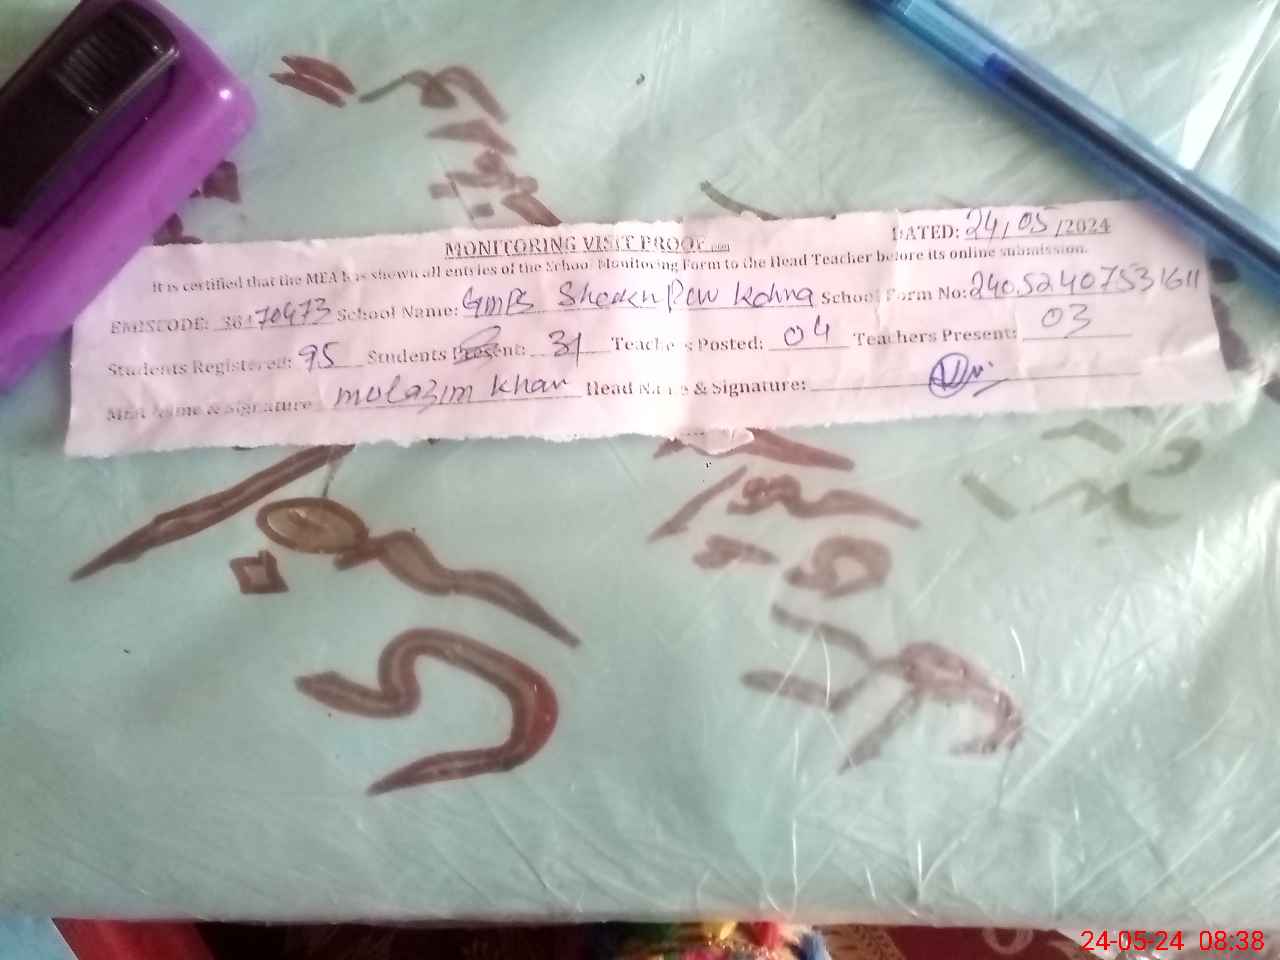 MONITORING VISIT PROOF
DATED: 24/05/2024
It is certified that the MEA has shown all entries of the School Monitoring Form to the Head Teacher before its online submission.
EMISCODE: 36470473 School Name: GMPS Kohna School Form No: 24052407531611
Students Registered: 95 Students Present: 31 Teachers Posted: 04 Teachers Present: 03
MEA Name & Signature mulazim khan Head Name & Signature:
24-05-24 08:38